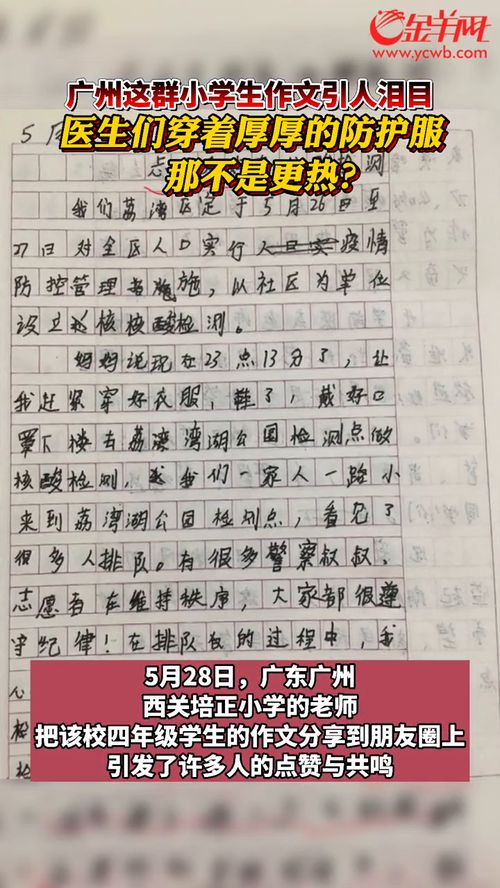 金羊网
www.ycwb.com
广州这群小学生作文引人泪目
医生们穿着厚厚的防护服
那不是更热?
5月
测
我们荔湾区定于5月26日至
27日对全区人口实行疫情
防控管理措施，以社区为单位
设立核酸检测。
妈妈说现在23点13分了，让
我赶紧穿好衣服，鞋了，戴好口
罩下楼去荔湾湾湖公园检测点做
核酸检测，我们一家人一路小
来到荔湾湖公园检测点，看见了
很多人排队。有很多警察叔叔、
志愿者在维持秩序，大家都很遵
守纪律！在排队的过程中，我
5月28日，广东广州
西关培正小学的老师
把该校四年级学生的作文分享到朋友圈上
引发了许多人的点赞与共鸣